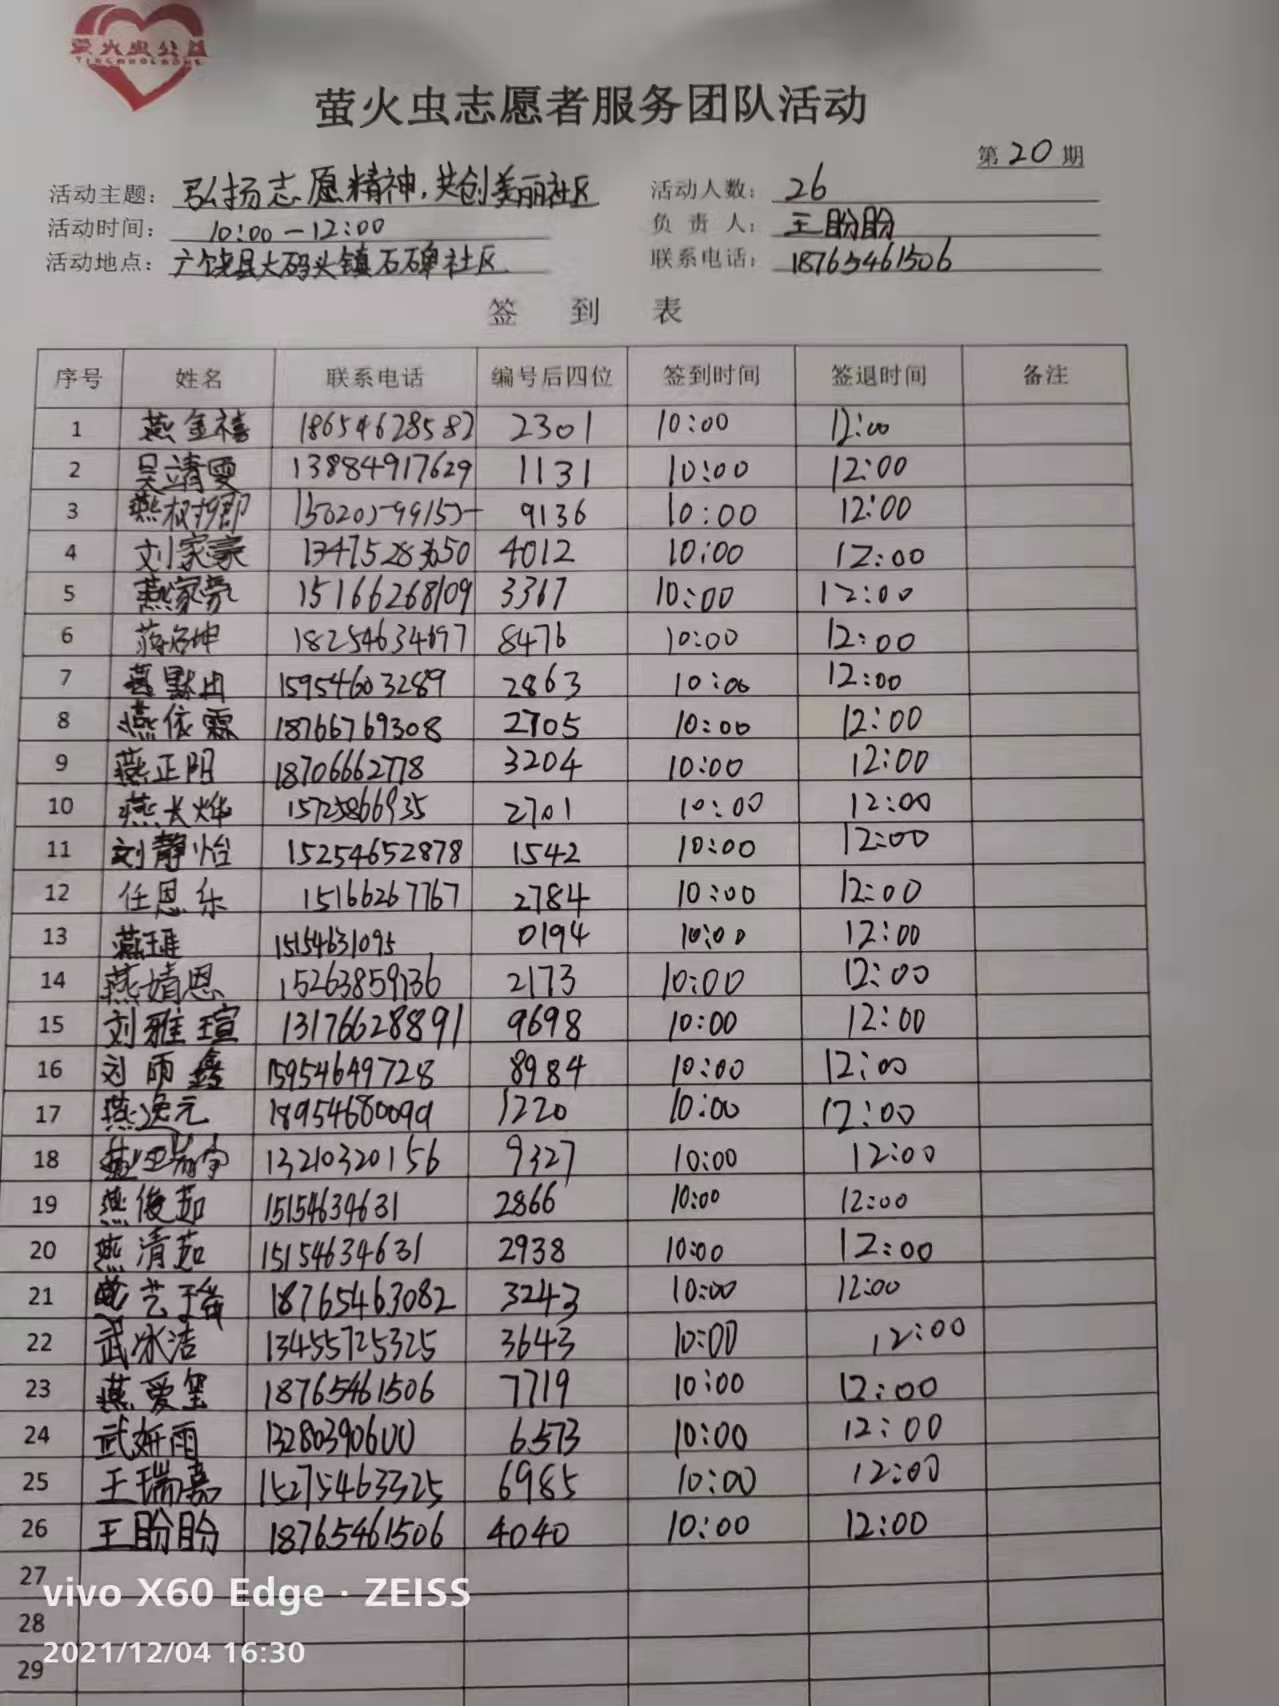 萤火虫公益
萤火虫志愿者服务团队活动
第 20 期
活动主题: 弘扬志愿精神,共创美丽社区 活动人数: 26
活动时间: 10:00-12:00 负责人: 王盼盼
活动地点: 广饶县大码头镇石碑社区 联系电话: 18765461506
签到表
序号 姓名 联系电话 编号后四位 签到时间 签退时间 备注
1 燕金禧 18654628582 2301 10:00 12:00
2 吴靖雯 13884917629 1131 10:00 12:00
3 9136 10:00 12:00
4 刘家豪 4012 10:00 12:00
5 燕家豪 15166268109 3367 10:00 12:00
6 18254634697 8476 10:00 12:00
7 15954603289 2863 10:00 12:00
8 燕依霖 18766769308 2705 10:00 12:00
9 燕正阳 18706662778 3204 10:00 12:00
10 燕大烨 15725866935 2701 10:00 12:00
11 刘静怡 15254652878 1542 10:00 12:00
12 任恩乐 15166267767 2784 10:00 12:00
13 0194 10:00 12:00
14 燕婧恩 15263859736 2173 10:00 12:00
15 刘雅瑄 13176628891 9698 10:00 12:00
16 刘雨鑫 15954649728 8984 10:00 12:00
17 燕逸元 18954680099 1220 10:00 12:00
18 13210320156 9327 10:00 12:00
19 燕俊茹 15154634631 2866 10:00 12:00
20 燕清茹 15154634631 2938 10:00 12:00
21 18765463082 3243 10:00 12:00
22 武冰洁 13455725325 3643 10:00 12:00
23 燕爱玺 18765461506 7719 10:00 12:00
24 武妍雨 13280390600 6573 10:00 12:00
25 王瑞嘉 15275463325 6985 10:00 12:00
26 王盼盼 18765461506 4040 10:00 12:00
27
vivo X60 Edge · ZEISS
28
2021/12/04 16:30
29